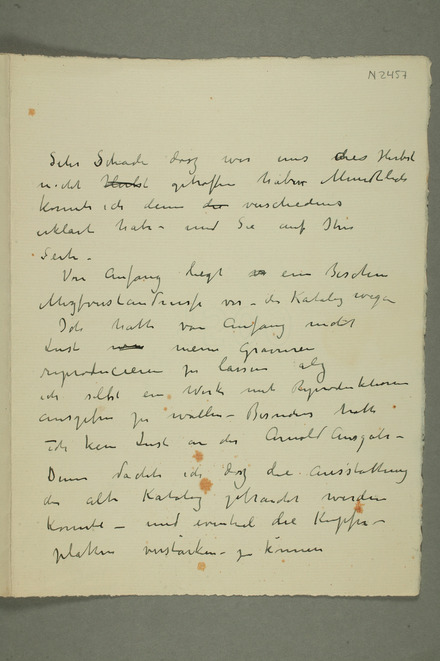 N 2457
Sehr Schade dasz wir uns dies Herbst
nicht Herbst getroffen haben Mündlich
konnte ich denn die verschiedenes
erklärt habe – und Sie auf Ihre
Seite –
Von Anfang liegt ein Bischen
Miszverständnisse vor – des Katalog wegen
Ich hatte von Anfang nicht
Lust meine Gravuren
reproducieren zu lassen als
ich selbst ein Werk mit Reproduktionen
ausgeben zu wollen – Besonders hatte
ich kein Lust an der Arnold Ausgabe –
Denn dachte ich dasz die Ausstattung
des alte Katalog gebraucht werden
konnte – und eventuel die Kupfer –
platten verstärken – zu können